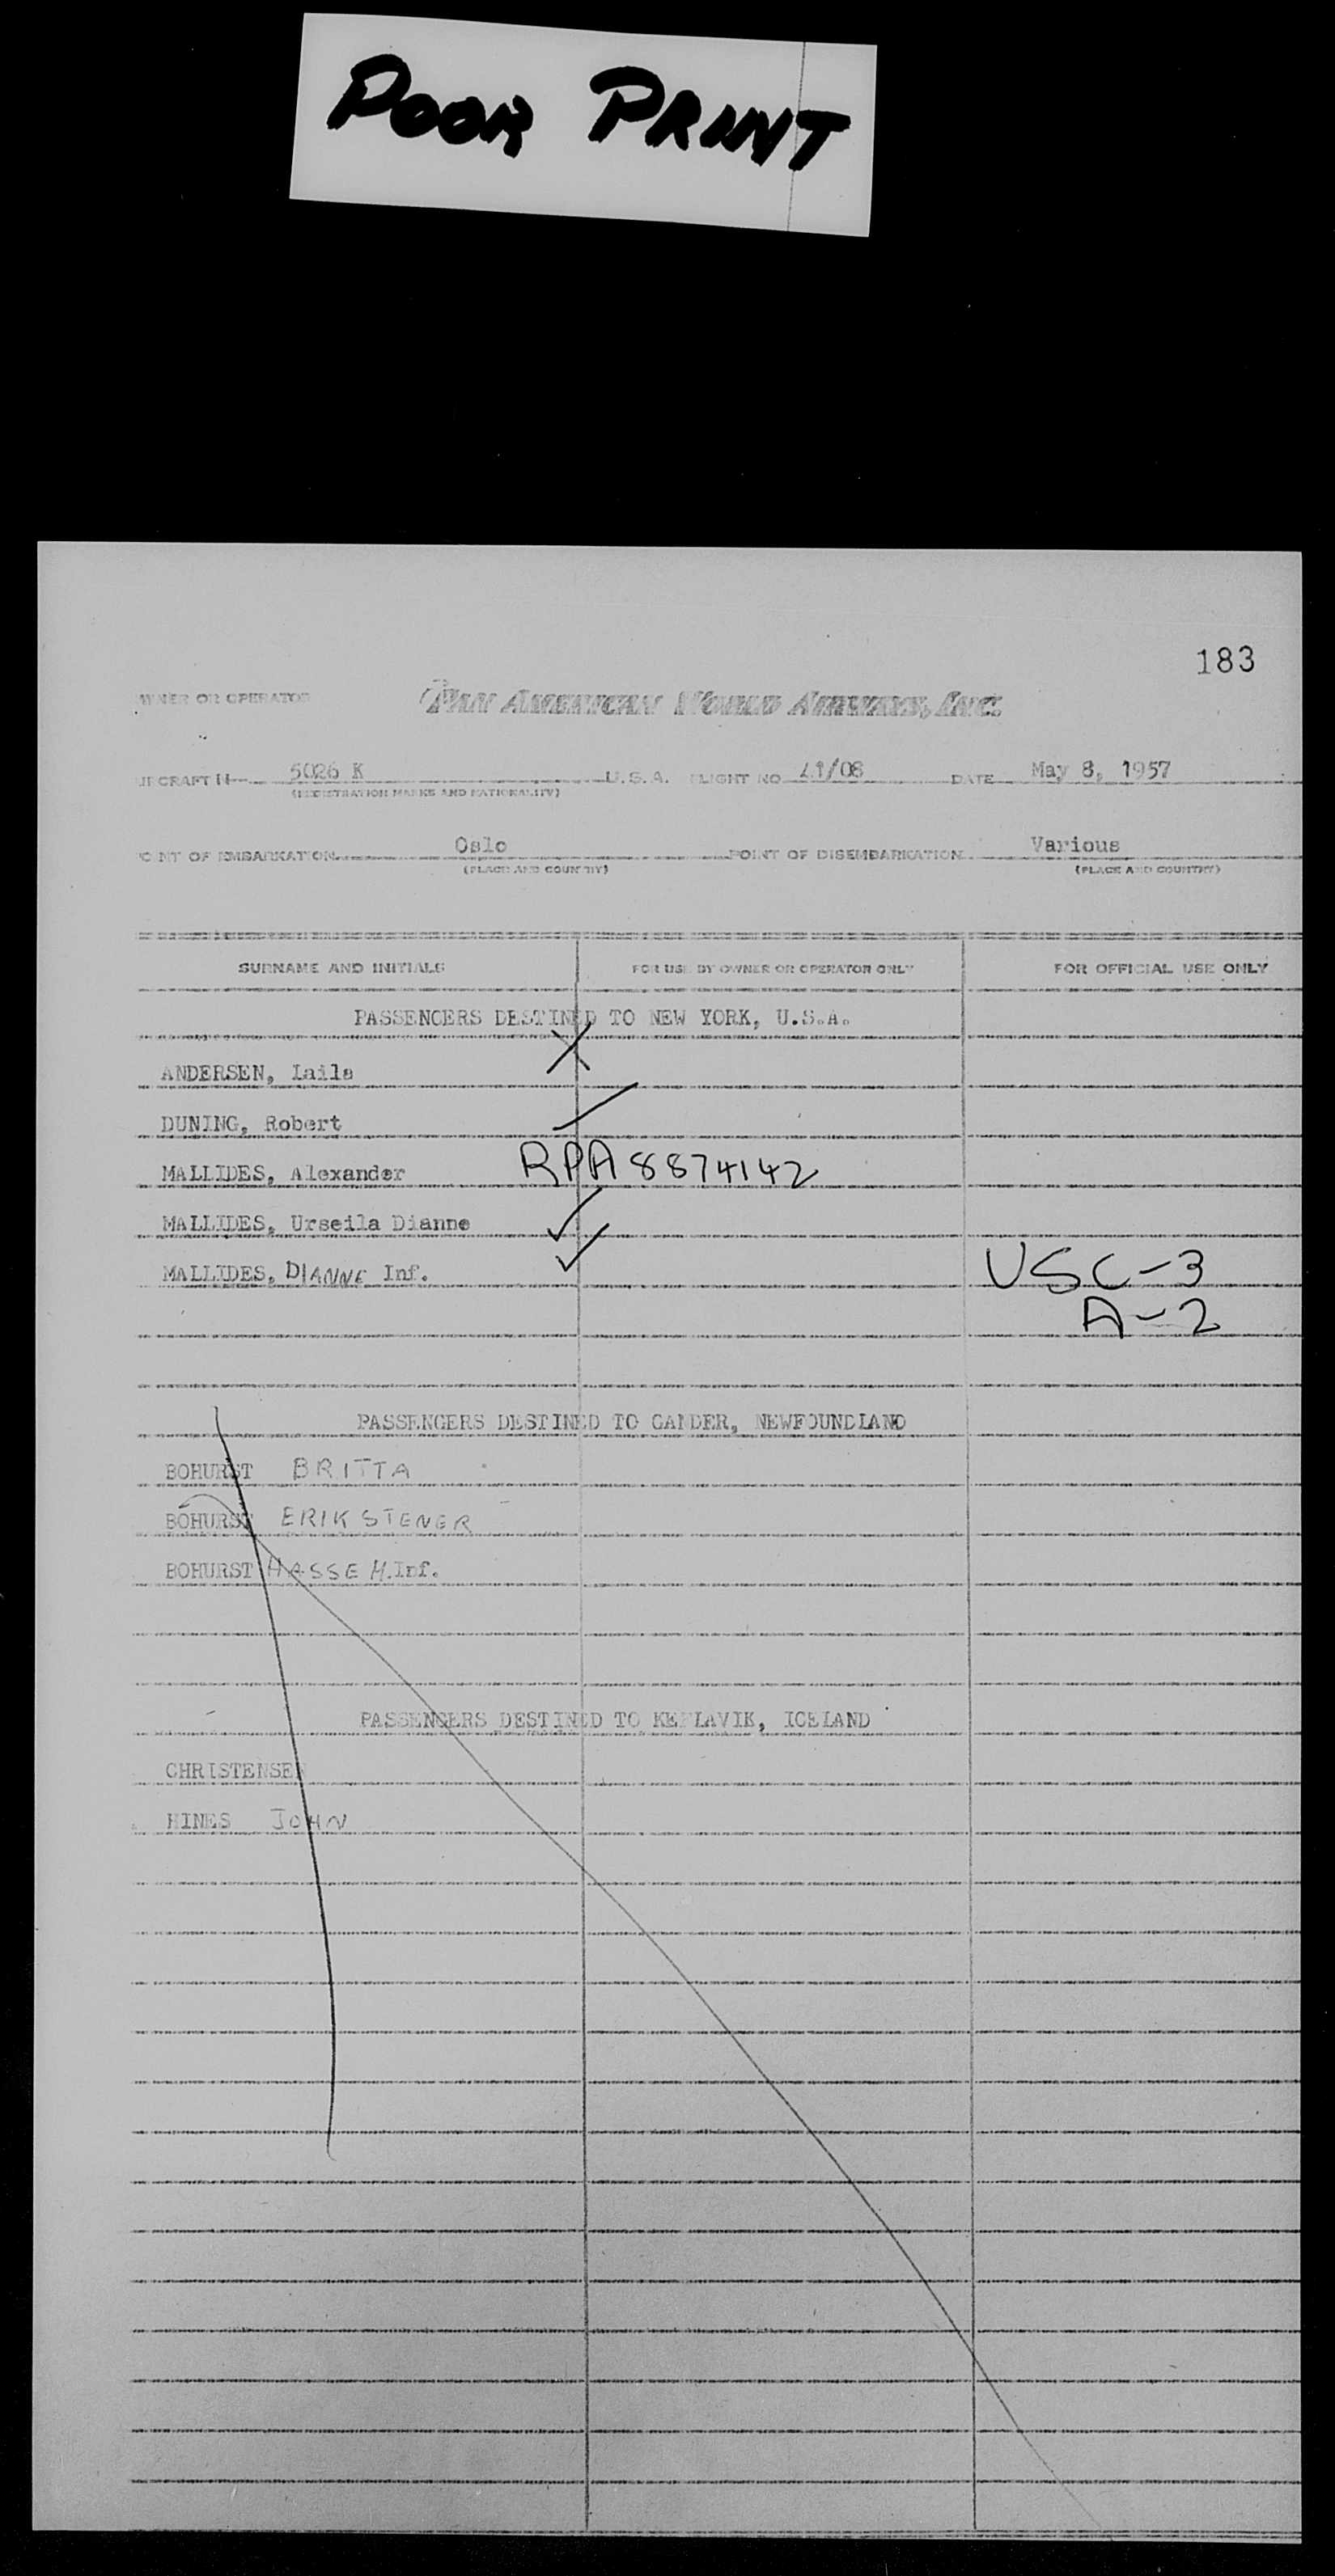 POOR PRINT
183
OWNER OR OPERATOR PAN AMERICAN WORLD AIRWAYS, INC.
AIRCRAFT N— 5026 K U.S.A. FLIGHT NO 41/08 DATE May 8, 1957
(REGISTRATION MARKS AND NATIONALITY)
POINT OF EMBARKATION Oslo POINT OF DISEMBARKATION Various
(PLACE AND COUNTRY) (PLACE AND COUNTRY)
SURNAME AND INITIALS FOR USE BY OWNER OR OPERATOR ONLY FOR OFFICIAL USE ONLY
PASSENGERS DESTINED TO NEW YORK, U.S.A.
ANDERSEN, Laila X
DUNING, Robert
MALLIDES, Alexander RPA 8874142
MALLIDES, Urseila Dianne ✓
MALLIDES, DIANNE Inf. ✓ USC-3
A-2
PASSENGERS DESTINED TO GANDER, NEWFOUNDLAND
BOHURST BRITTA
BOHURST ERIK STENER
BOHURST HASSE H. Inf.
PASSENGERS DESTINED TO KEFLAVIK, ICELAND
CHRISTENSEN
HINES JOHN